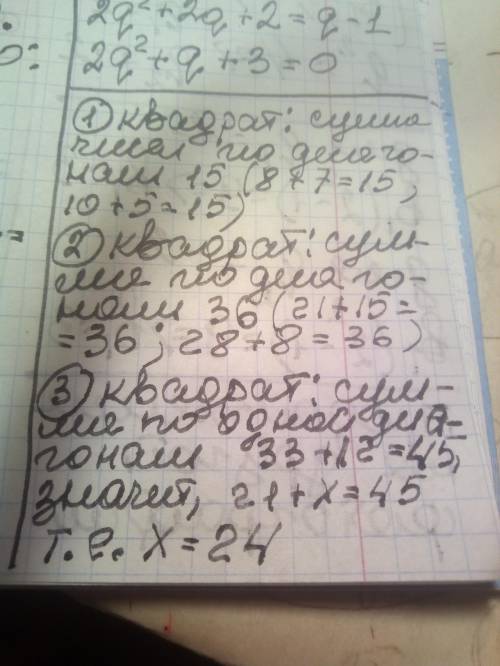 2q² + 2q + 2 = q - 1
2q² + q + 3 = 0
① квадрат: сумма
чисел по диаго-
нали 15 (8 + 7 = 15,
10 + 5 = 15)
② квадрат: сум-
ма по диаго-
нали 36 (21 + 15 =
= 36; 28 + 8 = 36)
③ квадрат: сум-
ма по одной диа-
гонали 33 + 12 = 45,
значит, 21 + x = 45
т.е. x = 24